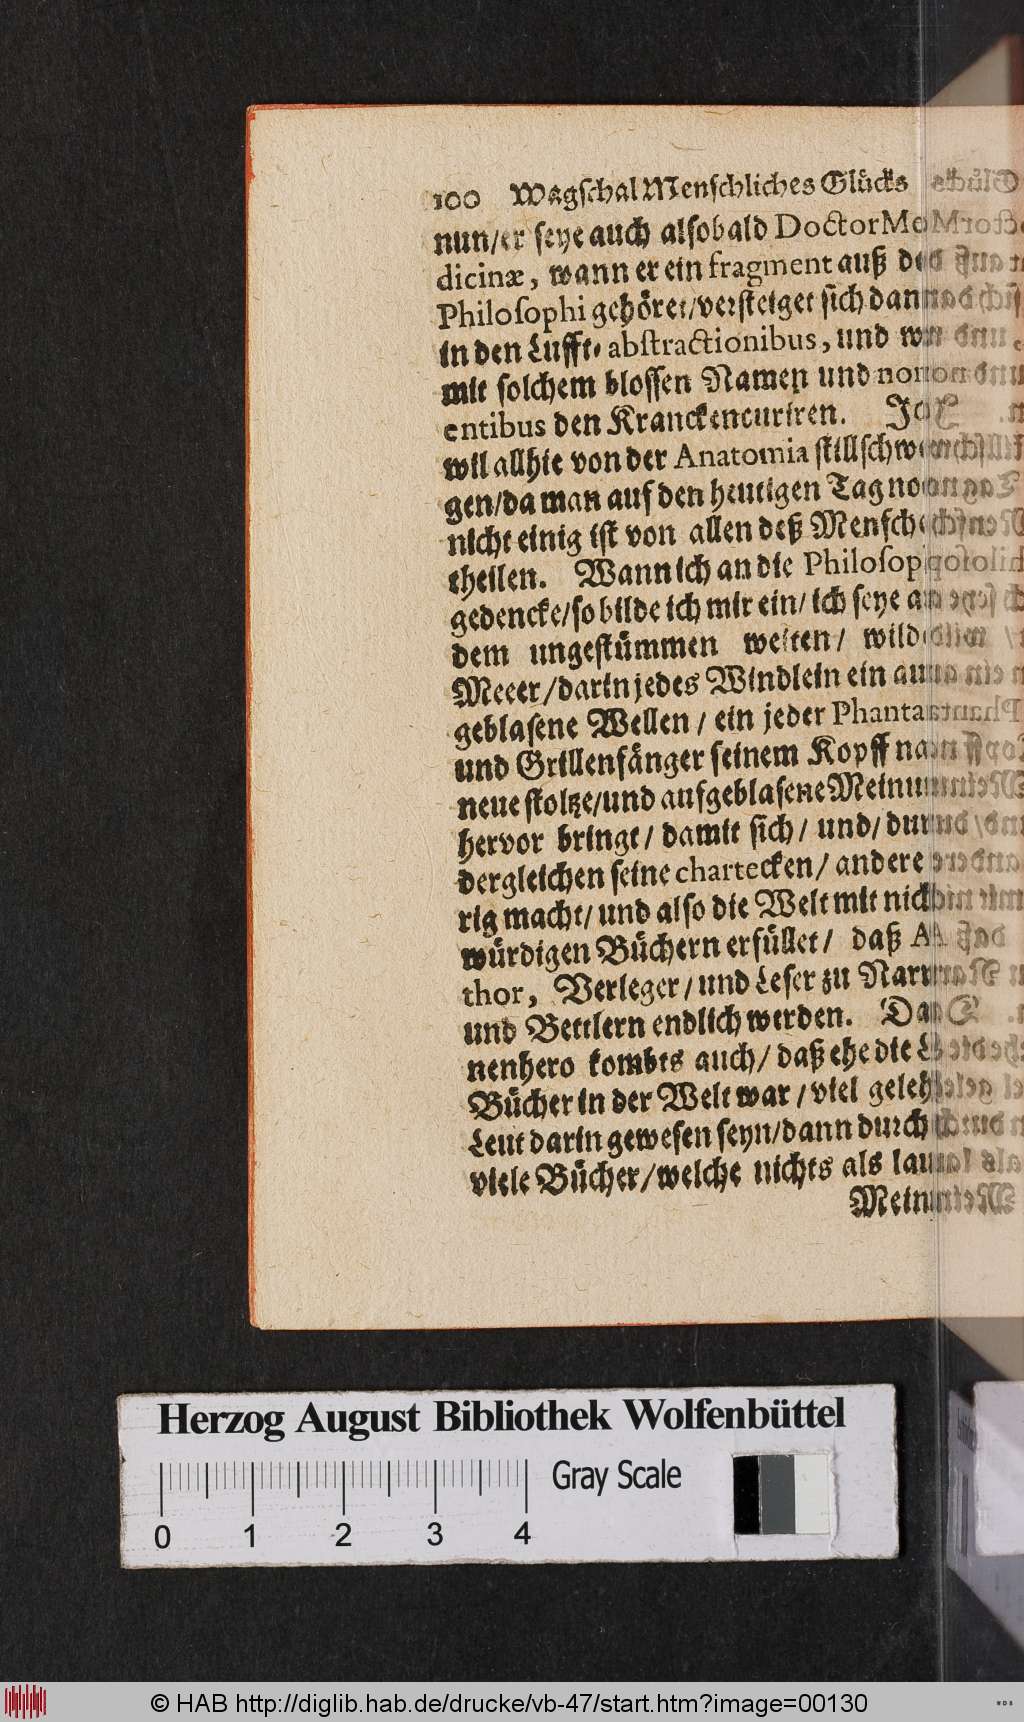 100 Wagschal Menschliches Glücks
nun/er seye auch alsobald Doctor Me
dicinæ, wann er ein fragment auß de
Philosophi gehöret/versteiget sich dann
in den Lufft, abstractionibus, und w
mit solchem blossen Namen und non
entibus den Krancken curiren. Ich
wil allhie von der Anatomia stillschwe
gen/da man auf den heutigen Tag no
nicht einig ist von allen deß Mensch
theilen. Wann ich an die Philosop
gedencke/so bilde ich mir ein/ ich seye a
dem ungestümmen weiten/ wild
Meeer/darin jedes Windlein ein au
geblasene Wellen/ ein jeder Phanta
und Grillenfänger seinem Kopff na
neue stoltze/und aufgeblasene Meinu
hervor bringt/ damit sich/ und/ du
dergleichen seine chartecken/ andere
rig macht/ und also die Welt mit nic
würdigen Büchern erfüllet/ daß A
thor, Verleger/ und Leser zu Narr
und Bettlern endlich werden. Da
nenhero kombts auch/ daß ehe die
Bücher in der Welt war/ viel geleh
Leut darin gewesen seyn/dann durch
viele Bücher/welche nichts als lau
Mein
Herzog August Bibliothek Wolfenbüttel
Gray Scale
0 1 2 3 4
© HAB http://diglib.hab.de/drucke/vb-47/start.htm?image=00130